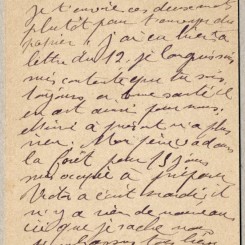 je t'envoie ces deux mots
plutôt pour t'envoyer du
papier j'ai eu hier ta
lettre du 12. je languissais
suis contente que tu sois
toujours en bonne santé il
en est ainsi pour nous.
à présent n'a plus
rien. Mon père va dans
la forêt pour 15 jours
suis occupé à préparer
a écrit mardi, il
n'y a rien de nouveau
ici que je sache